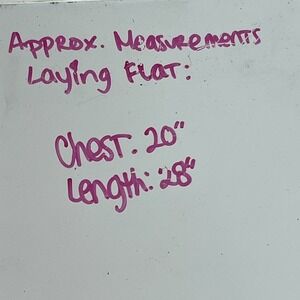 Approx. Measurements
Laying Flat:
Chest: 20"
Length: 28"